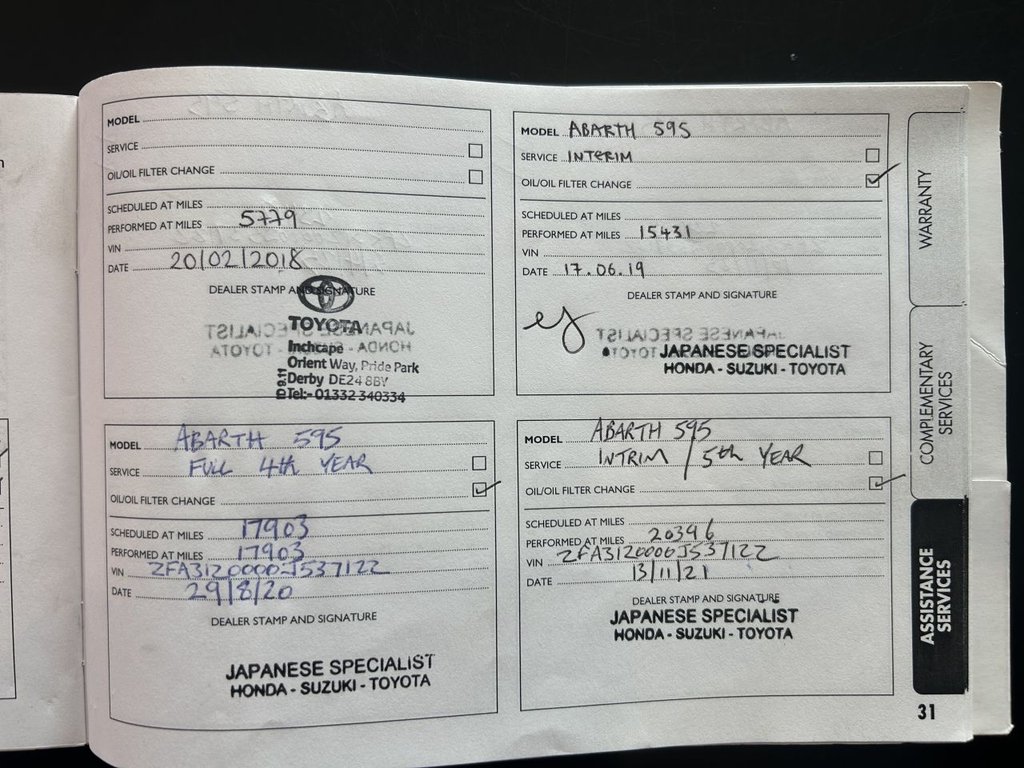 MODEL
SERVICE
OIL/OIL FILTER CHANGE
SCHEDULED AT MILES
PERFORMED AT MILES 5779
VIN
DATE 20/02/2018
DEALER STAMP AND SIGNATURE
TOYOTA
Inchcape
Orient Way, Pride Park
Derby DE24 8BY
Tel:- 01332 340334
MODEL ABARTH 595
SERVICE INTERIM
OIL/OIL FILTER CHANGE
SCHEDULED AT MILES
PERFORMED AT MILES 15431
VIN
DATE 17.06.19
DEALER STAMP AND SIGNATURE
JAPANESE SPECIALIST
HONDA - SUZUKI - TOYOTA
MODEL ABARTH 595
SERVICE FULL 4th YEAR
OIL/OIL FILTER CHANGE
SCHEDULED AT MILES 17903
PERFORMED AT MILES 17903
VIN ZFA3120000J537122
DATE 29/8/20
DEALER STAMP AND SIGNATURE
JAPANESE SPECIALIST
HONDA - SUZUKI - TOYOTA
MODEL ABARTH 595
SERVICE INTRIM / 5th YEAR
OIL/OIL FILTER CHANGE
SCHEDULED AT MILES
PERFORMED AT MILES 20396
VIN ZFA3120000J537122
DATE 13/11/21
DEALER STAMP AND SIGNATURE
JAPANESE SPECIALIST
HONDA - SUZUKI - TOYOTA
WARRANTY
COMPLEMENTARY
SERVICES
ASSISTANCE
SERVICES
31